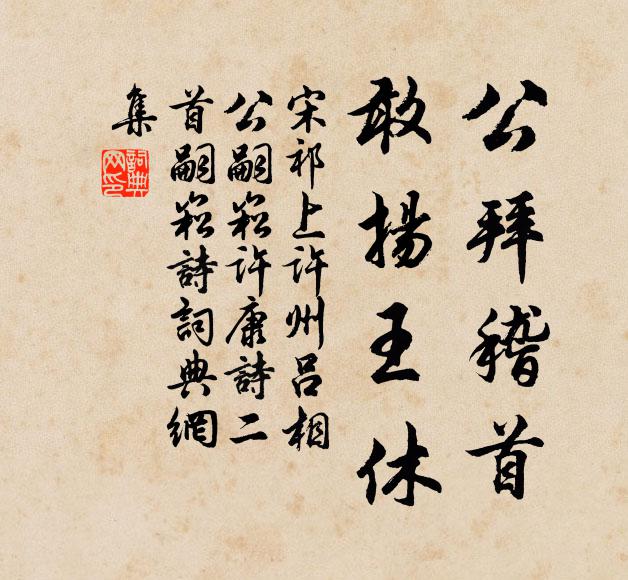 公拜稽首
敢揚王休
宋祁上許州呂相
公嗣崧許康詩二
首嗣崧詩詞典網
集
詞典網印